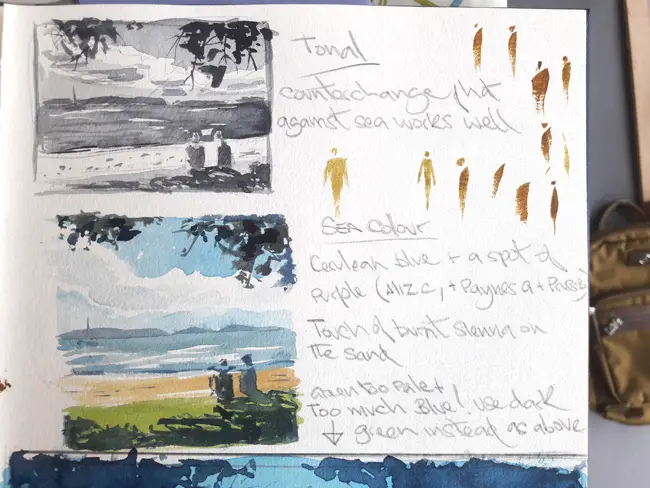 Tonal
counterchange, hat
against sea works well
SEA COLOUR
Cerulean blue + a spot of
Purple (MIZC, + Paynes G +
Touch of burnt sienna on
The sand
Green too pale +
Too much Blue! Use dark
green instead as above